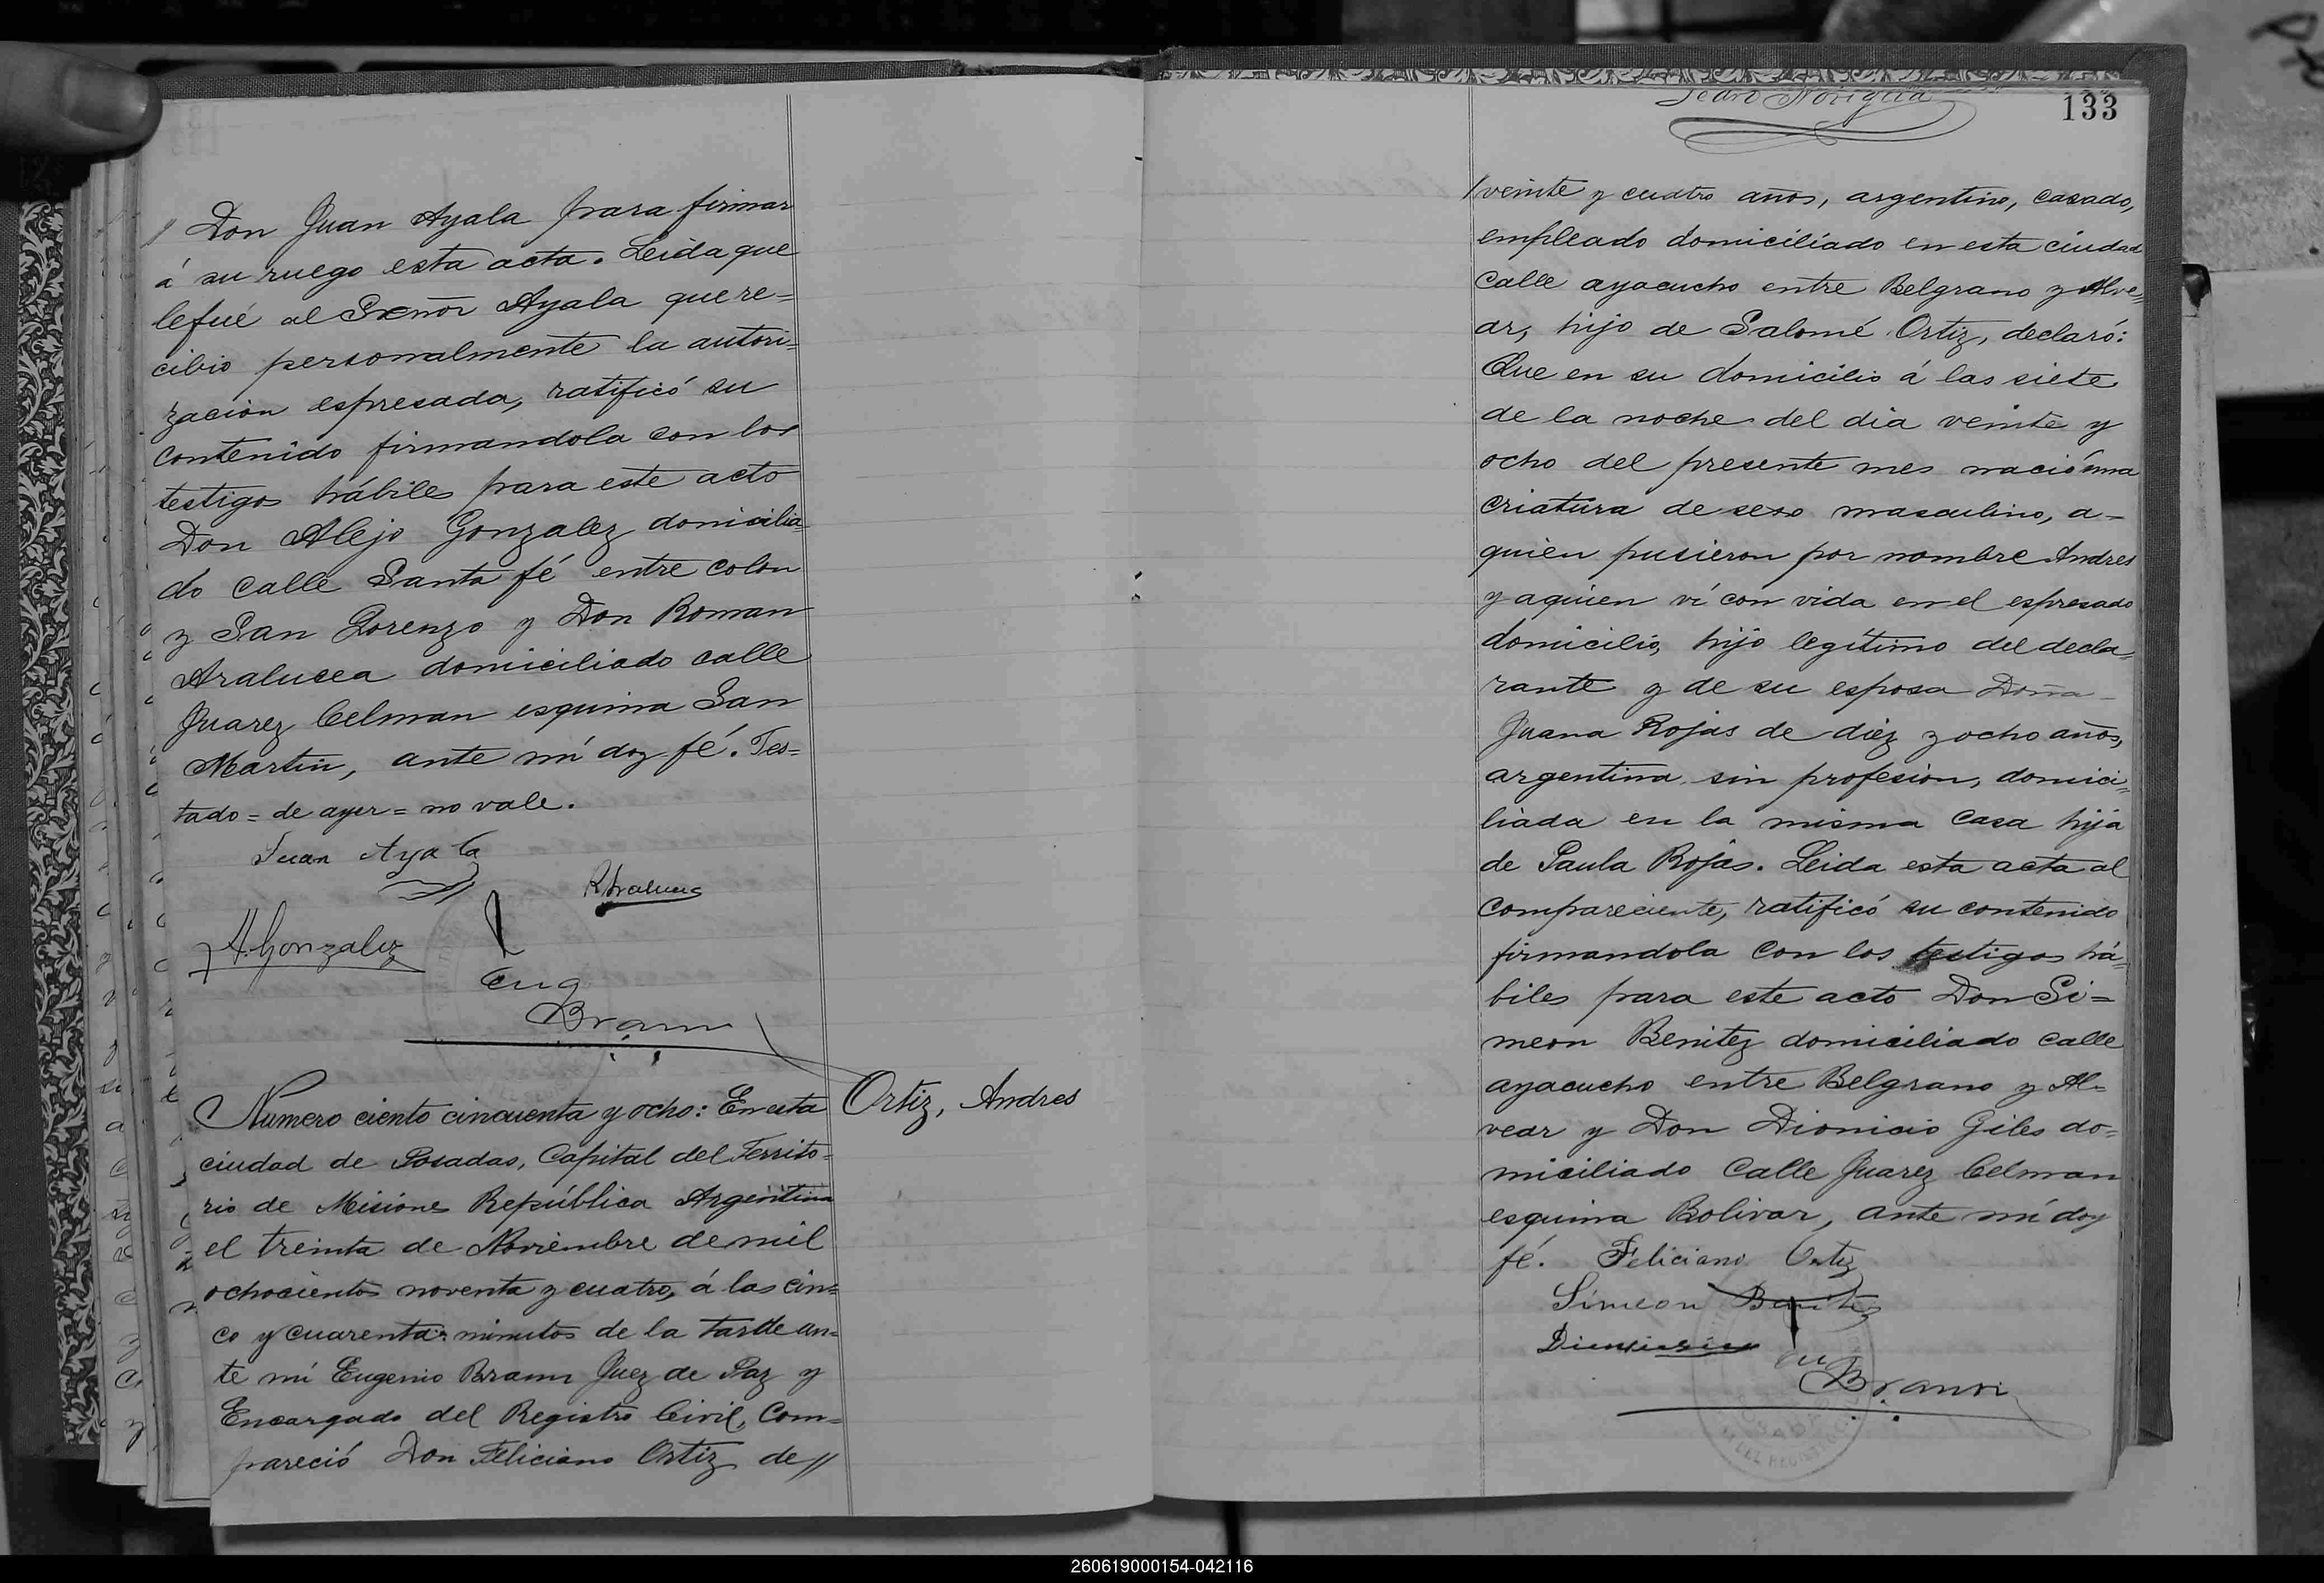 Don Juan Ayala para firmar
á su ruego esta acta. Leida que
lefué al Señor Ayala que re=
cibio personalmente la autori=
zacion espresada, ratificó su
contenido firmandola con los
testigos hábiles para este acto
Don Alejo Gonzalez domicilia=
do calle Santa fé entre colon
y San Lorenzo y Don Roman
Aralucea domiciliado calle
Juarez Celman esquina San
Martin, ante mi doy fé. Tes=
tado = de ayer = no vale.
Juan Ayala
A. Gonzalez
Eug
Braun
Numero ciento cincuenta y ocho: En esta
Ortiz, Andres
ciudad de Posadas, Capital del Territo=
rio de Misiones República Argentina
el treinta de Noviembre de mil
ochocientos noventa y cuatro, á las cin=
co y cuarenta minutos de la tarde an=
te mi Eugenio Braun Juez de Paz y
Encargado del Registro Civil, Com=
pareció Don Feliciano Ortiz de //
Pedro Noriega
133
veinte y cuatro años, argentino, casado,
empleado domiciliado en esta ciudad
Calle ayacucho entre Belgrano y Alve=
ar, hijo de Salomé Ortiz, declaró:
Que en su domicilio á las siete
de la noche del dia veinte y
ocho del presente mes nació una
criatura de sexo masculino, a-
quien pusieron por nombre Andres
y aquien ví con vida en el espresado
domicilio, hijo legítimo del decla=
rante y de su esposa Doña
Juana Rojas de diez y ocho años,
argentina sin profesion, domici=
liada en la misma casa hija
de Paula Rojas. Leida esta acta al
compareciente, ratificó su contenido
firmandola con los testigos há=
biles para este acto Don Si=
meon Benitez domiciliado calle
ayacucho entre Belgrano y Al=
vear y Don Dionicio Giles do=
miciliado Calle Juarez Celman
esquina Bolivar, ante mi doy
fé. Feliciano Ortiz
Simeon Benitez
Eug
Braun
260619000154-042116